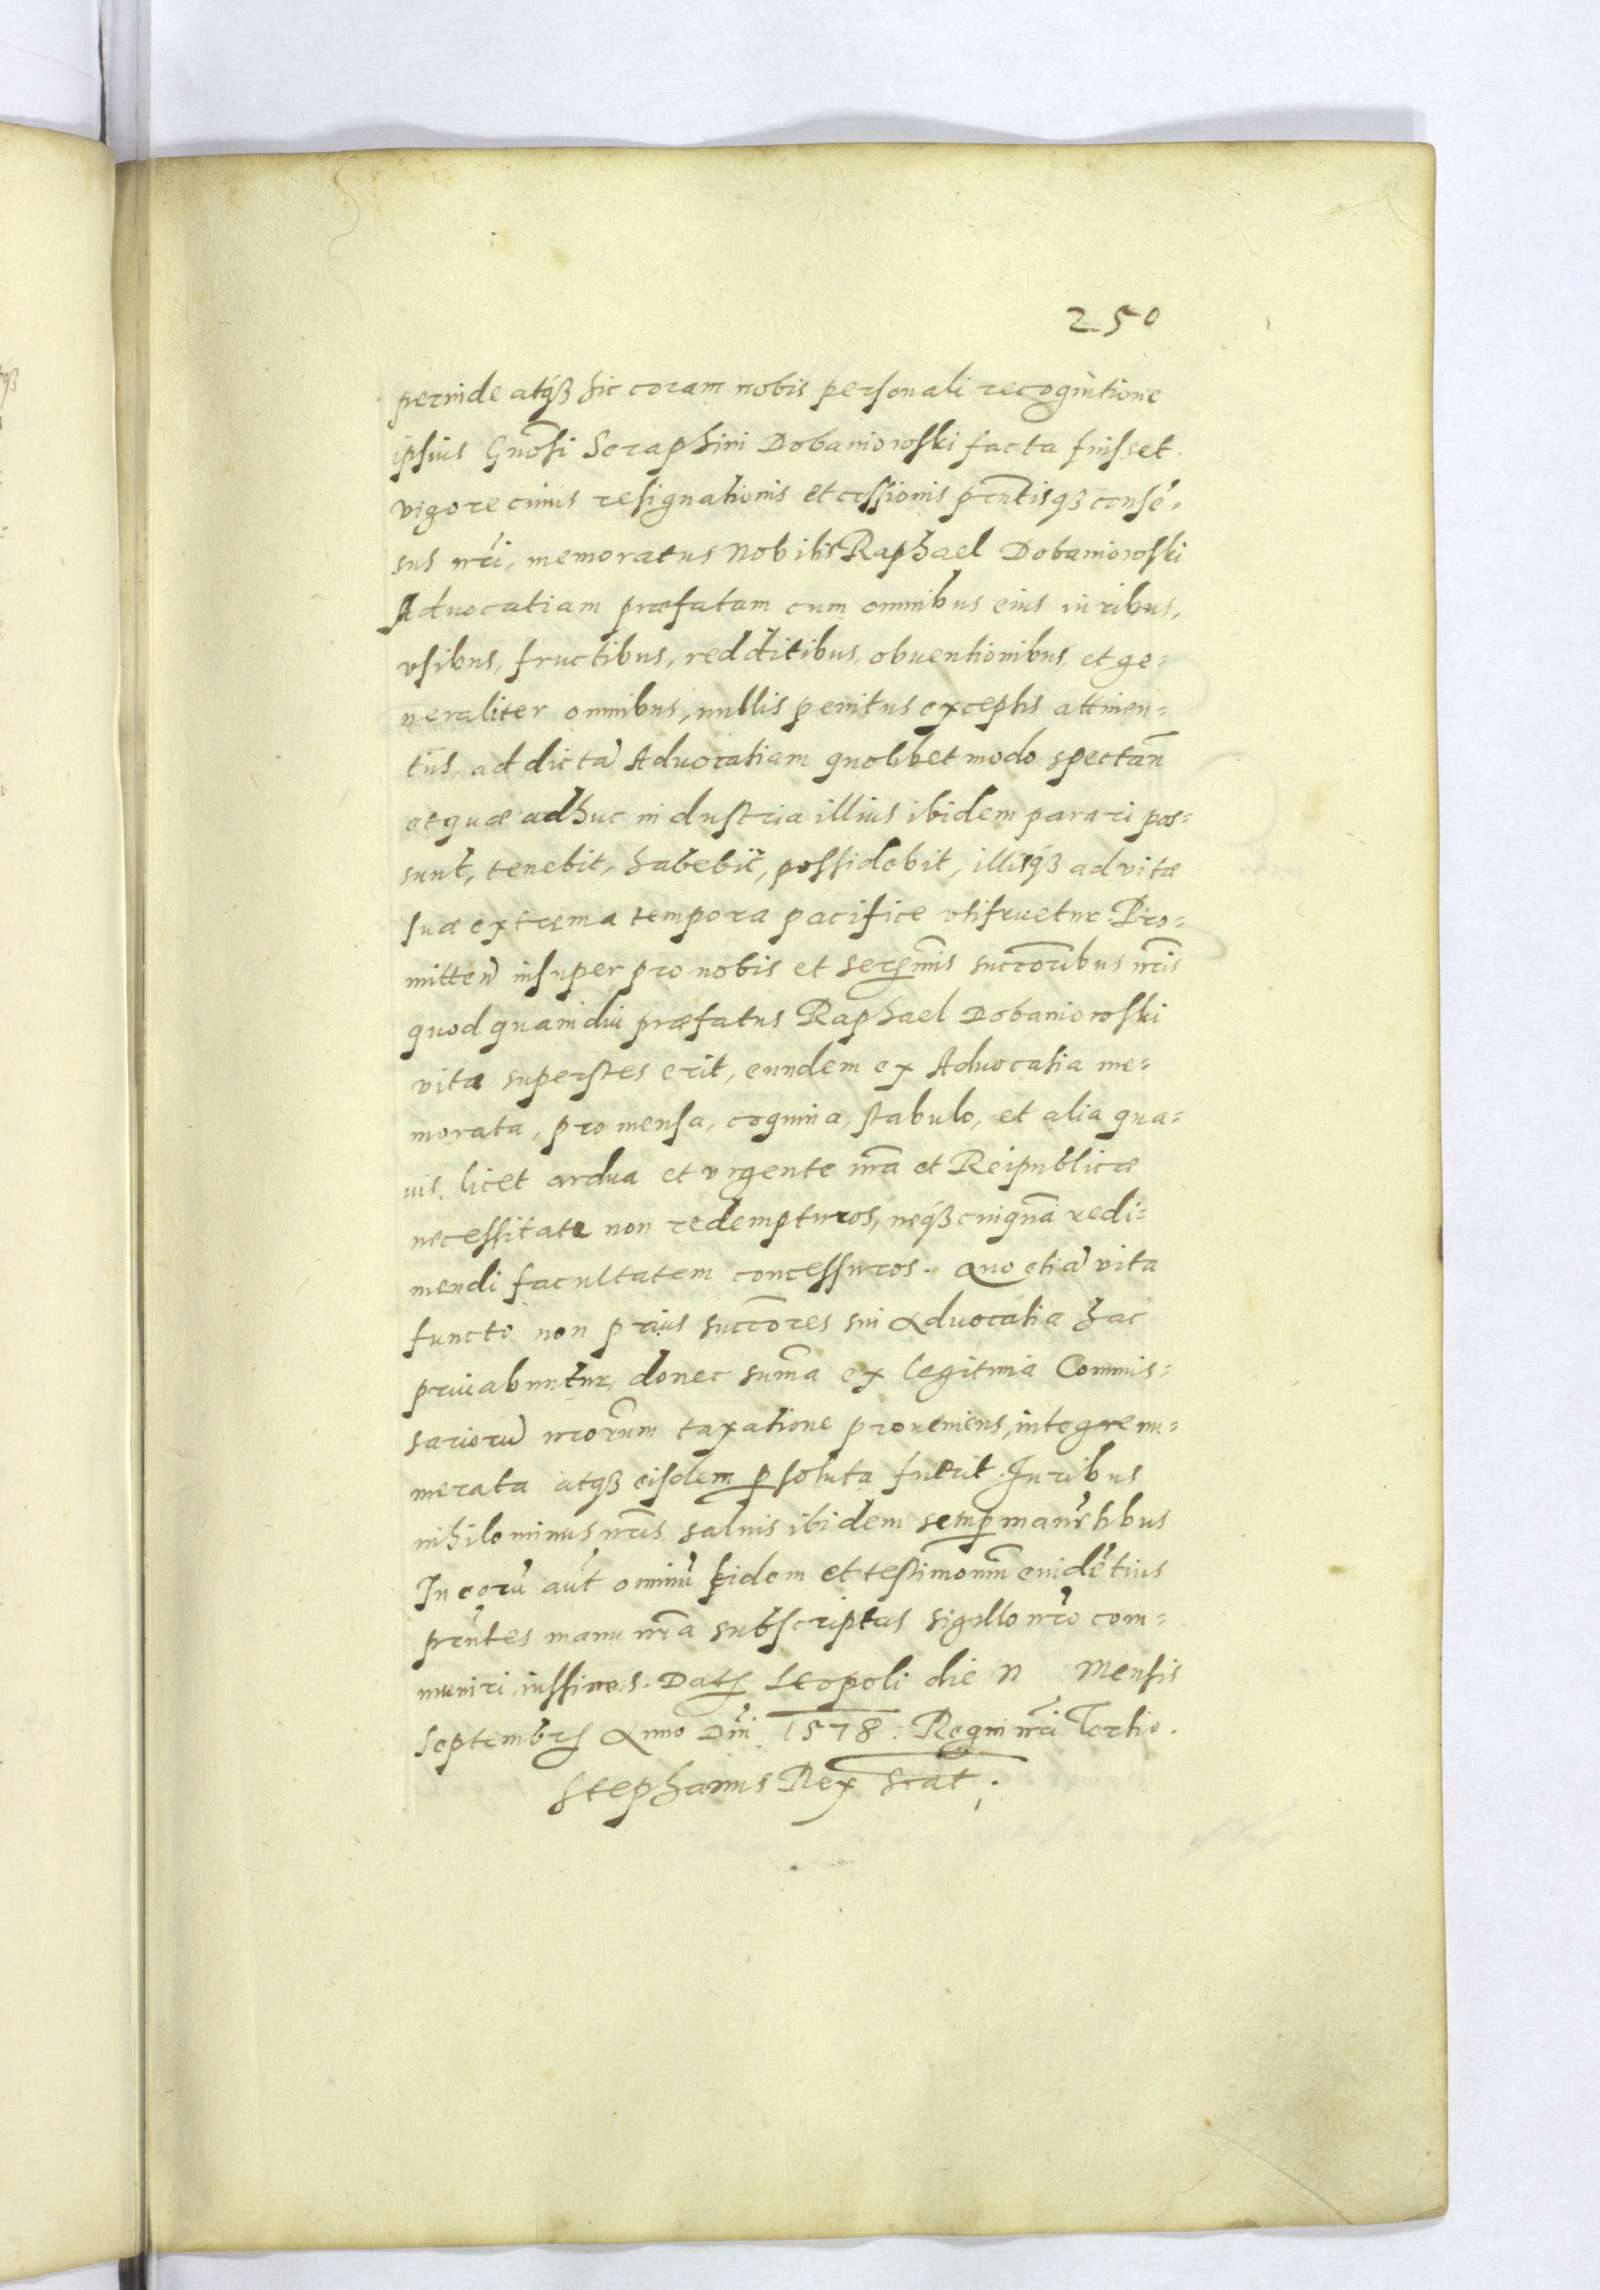 250
perinde atq3 hic coram nobis personali recognitione
ipsius Gnosi Seraphini Dobaniowski facta fuisset.
vigore cuius resignationis et cessionis pntisq3 consē-
sus nri, memoratus Nobilis Raphael Dobaniowski
Aduocatiam præfatam cum omnibus eius iuribus,
vsibus, fructibus, redditibus, obuentionibus, et ge-
neraliter omnibus, nullis penitus exceptis attinen-
tiis, ad dictā Aduocatiam quolibet modo spectan̄
et quæ adhuc industria illius ibidem parari pos-
sunt, tenebit, habebit, possidebit, illisq3 ad vitæ
suæ extrema tempora pacifice vtifruetur. Pro-
mitten̄ insuper pro nobis et serenmis succoribus nris
quod quamdiu præfatus Raphael Dobaniowski
vita superstes erit, eundem ex Aduocatia me-
morata, pro mensa, coquina, stabulo, et alia qua-
uis, licet ardua et vrgente nra et Reipublicæ
necessitate non redempturos, neq3 cuiquā redi-
mendi facultatem concessuros. Quo etiā vita
functo non prius succores sui Aduocatia hac
priuabuntur, donec suma ex legitima Commis-
sariorū nrorum taxatione proueniens, integre nu-
merata atq3 eisdem psoluta fuerit. Iuribus
nihilominus nris saluis ibidem semp manētibus
In eorū aut omniū fidem et testimonium euidētius
pntes manu nra subscriptas sigillo nro com-
muniri iussimus. Dat Leopoli die N Mensis
Septembr Anno Dni 1578. Regni nri Tertio.
Stephanus Rex Scat.